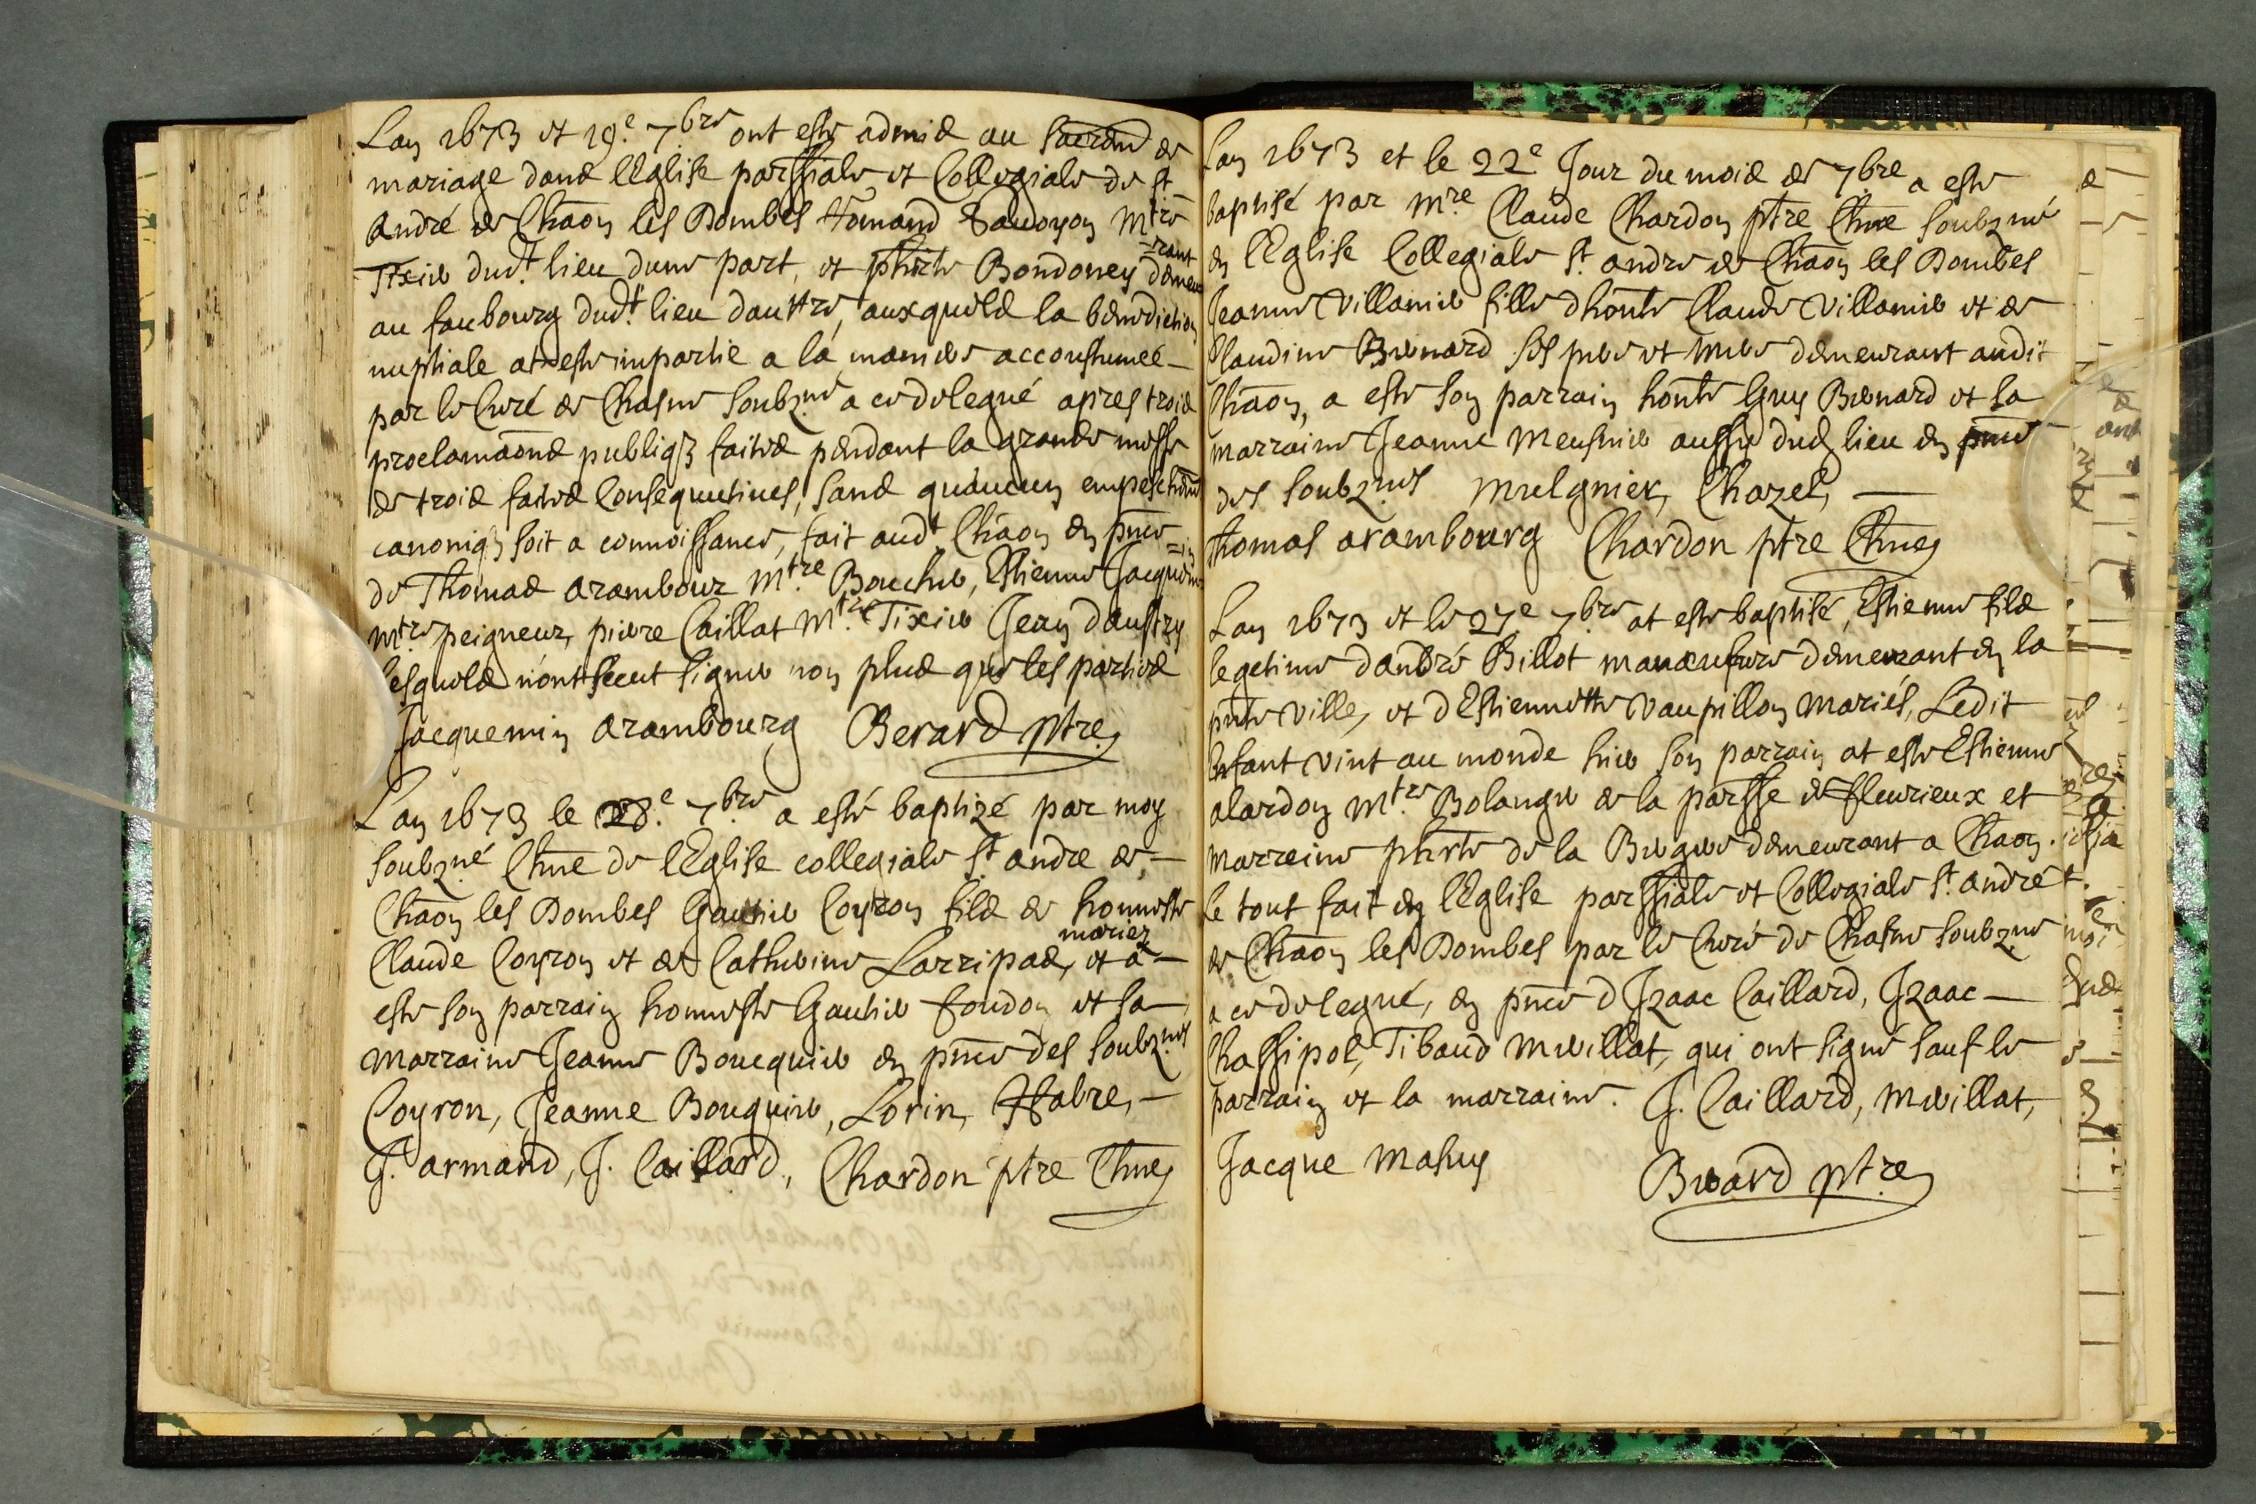 Lan 1673 et 19.e 7.bre ont este admis au Sacremt de
mariage dans lEglise parssiale et Collegiale de St
André de Chãon les Dombes Savoyon Mtre
Tixier dudt. lieu dune part, et phirte Bondoney demeu
=rant
au faubourg dudt. lieu dauttre, auxquels la benediction
nuptiale at este impartie a la maniere accoustumeé
par le Curé de Chasne soubzné a ce delegué apres trois
proclamãons publiqz faites pendant la grande messe
de trois festes Consequutives, sans quaucun empeschemt
canoniq soit a connoissance, fait audt Chãon en pñce
de Thomas arambour Mtre. Boucher, Estienne Jacquem
=in
Mtre peigneur, pierre Caillat Mtre. Tixier Jean daustry
lesquels nont sceut signer non plus que les parties
Jacquemin arambourg Berard ptre
Lan 1673 le 20.e 7.bre a esté baptizé par moy
soubzné Chne de lEglise collegiale St andre de
Chãon les Dombes Gautier Coyron fils de honneste
Claude Coyron et de Catherine Larripas, et a
mariez
este son parrain honneste Gautier Foudon et sa
marraine Jeanne Boucquier en pñce des soubznés
Coyron, Jeanne Bouquier, Lorin, ffabre,
J. armand, J. Caillard, Chardon ptre Chne
Lan 1673 et le 22e Jour du mois de 7.bre a este
baptisé par Mre. Claude Chardon ptre Chne soubzné
en lEglise Collegiale St. andre de Chãon les Dombes
Jeanne Villanier fille dhonte Claude Villanier et de
Claudine Bernard ses pere et mere demeurant audit
Chãon, a este son parrain honte Guy Bernard et sa
marraine Jeanne Meusnier aussy dud lieu en pñce
des soubznés Mulgnier, Chazel,
Thomas arambourg Chardon ptre Chne
Lan 1673 et le 27e 7.bre at este baptisé, Estienne fils
legetime dandré Billot manœuvre demeurant en la
pnte ville, et dEstiennette Vaupillon mariés, Ledit
Enfant vint au monde hier son parrain at este Estienne
alardon Mtre. Bolanger de la parsse de fleurieux et
marreine phirte de la Bergere demeurant a Chãon.
le tout fait en lEglise parssiale et Collegiale St. andré
de Chãon les Dombes par le Curé de Chasne soubzné
a ce delegué, en pñce dJzaac Caillard, Jzaac
Chassipol, Tibaud Merillat, qui ont signé sauf le
parrain et la marraine. J. Caillard, Merillat,
Jacque Mahuy Berard ptre